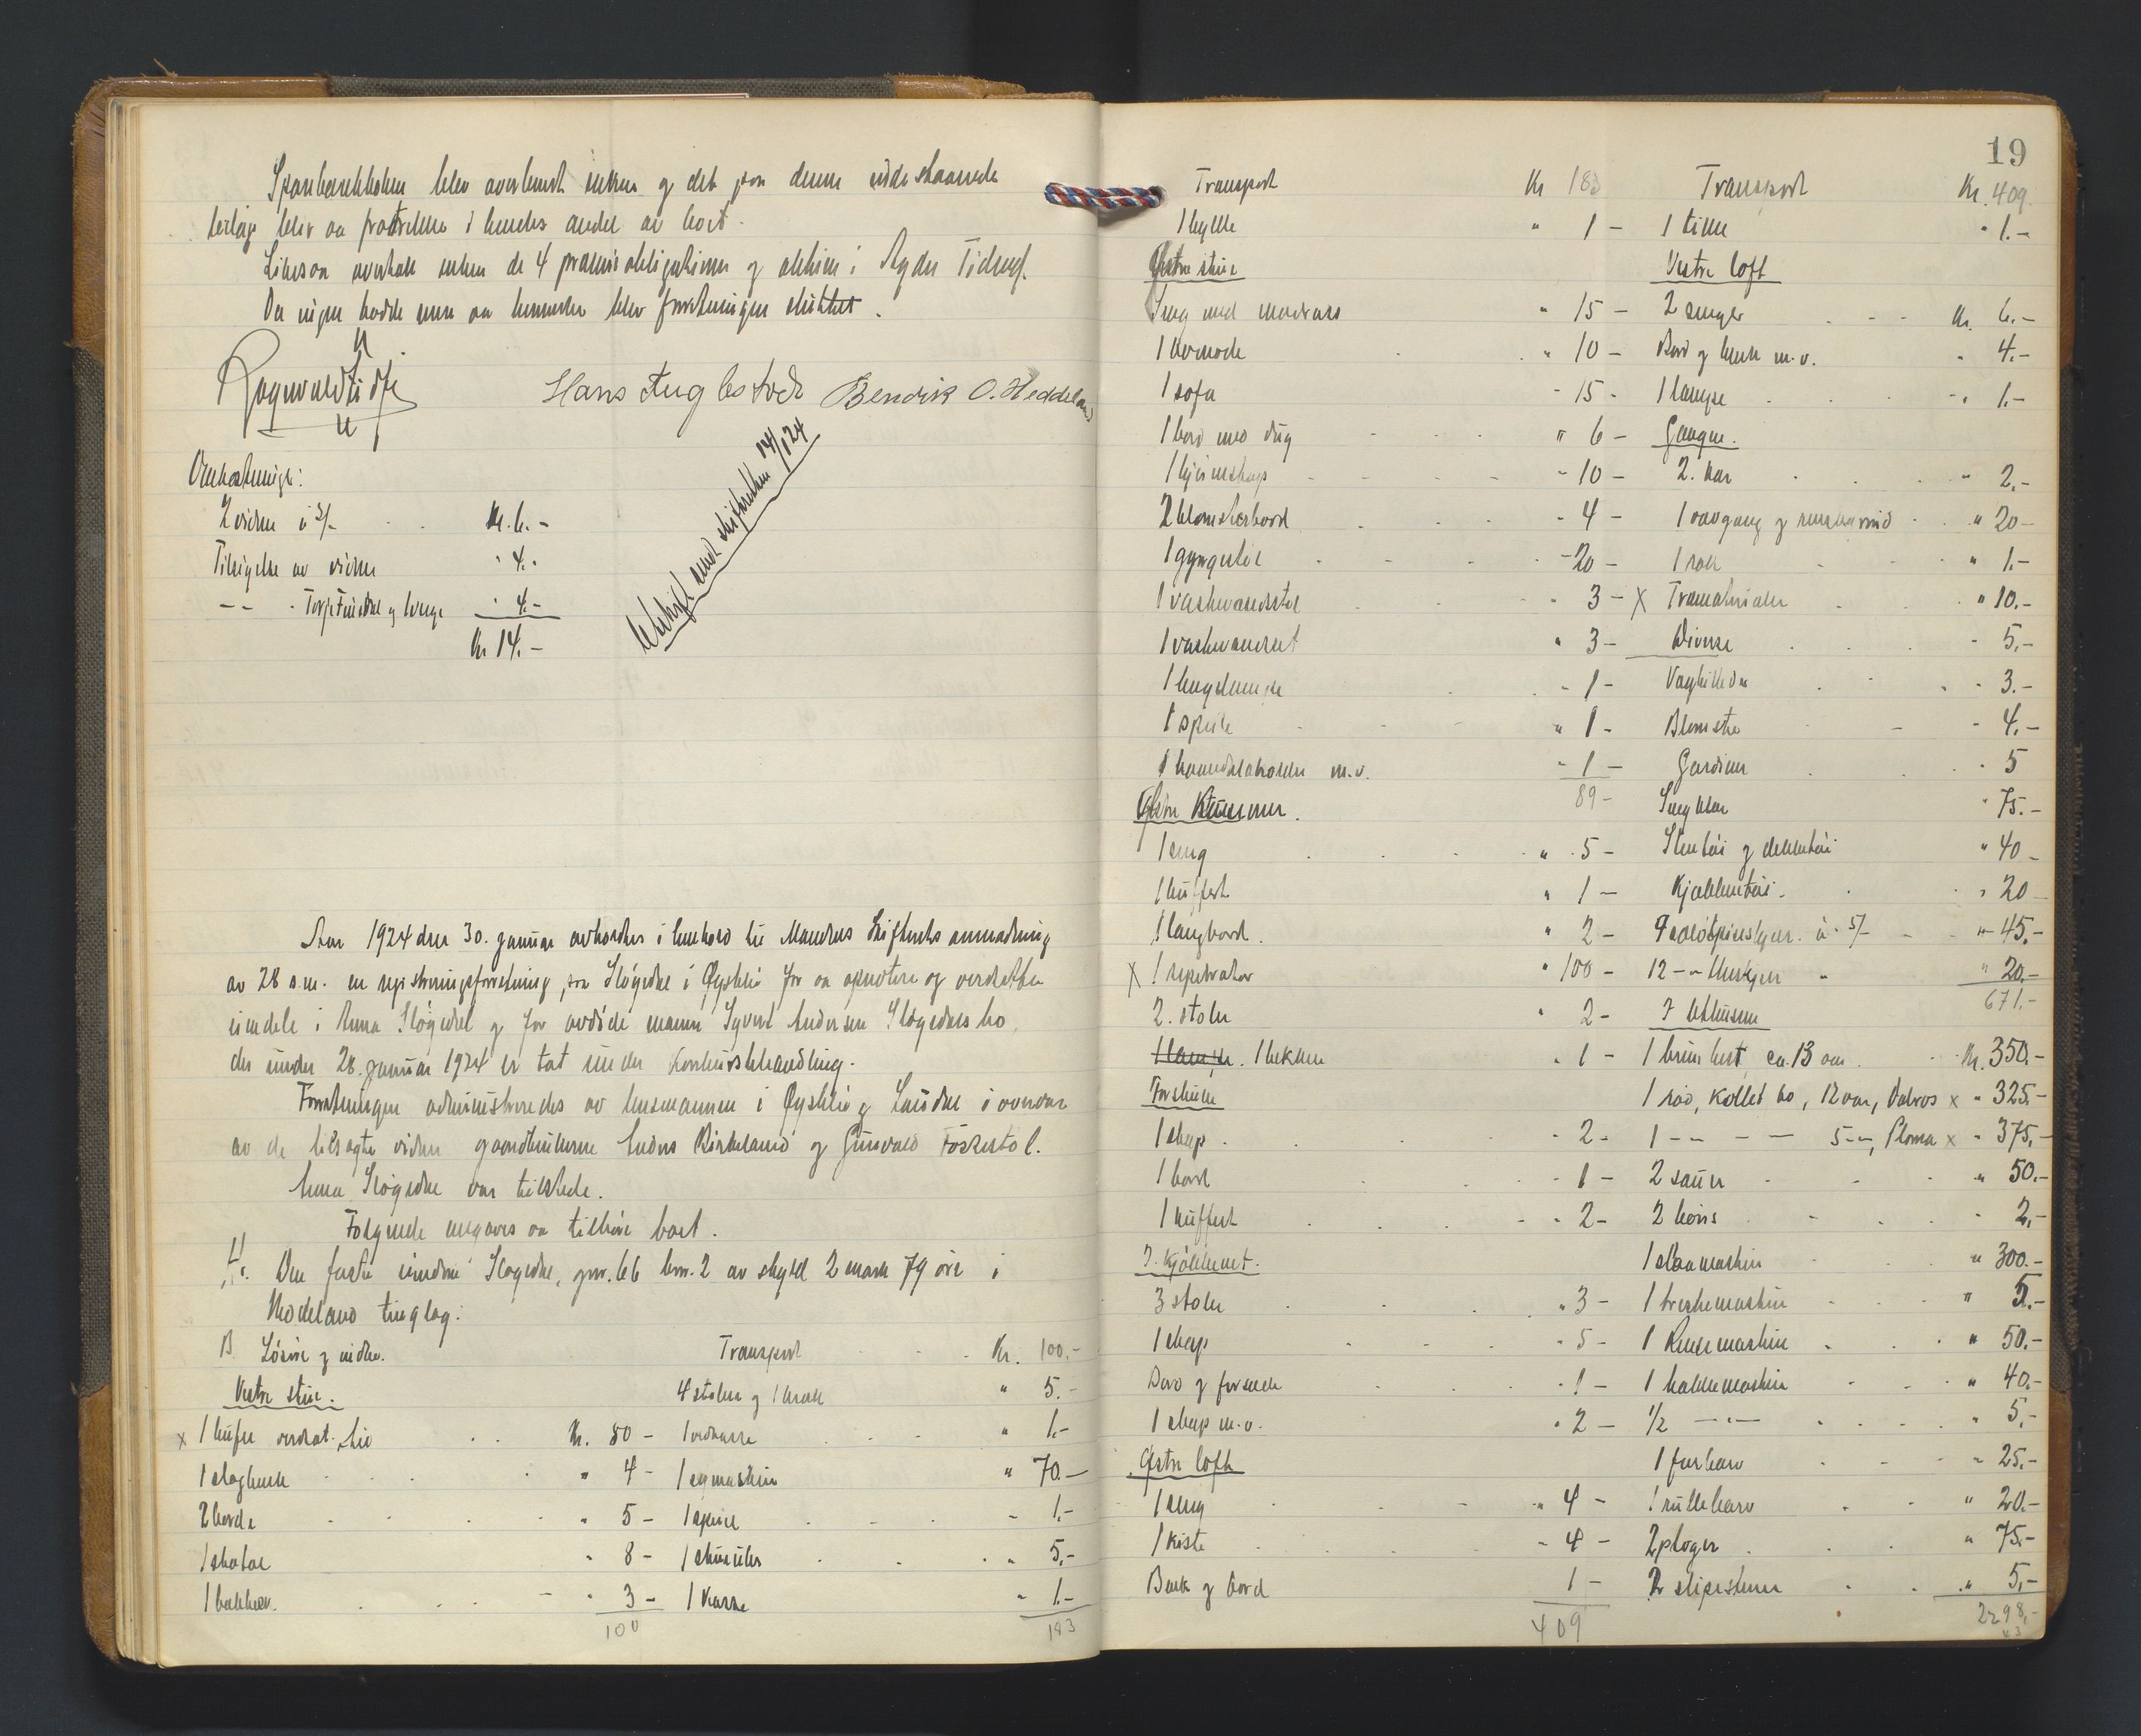 Sparebankboken blev overlevert enken og det paa denne indestaaende
beløp blev aa fratrekke i hendes andel av boet.
Likesaa overtok enken de 4 præmieobligationer og aktien i Agder Tidend.
Da ingen hadde mere aa bemerke blev forretningen sluttet.
Hans Auglestveit Bendik O. Heddeland
Utskrift sendt skifteretten 14/1 24
Omkostninger:
2 vidner à 3/- Kr. 6.-
Tilsigelse av vidner " 4.-
-- - Terje Finsdal og enge " 4.-
Kr 14.-
Aar 1924 den 30. januar avholdtes i henhold til Mandals Skifteretts anmodning
av 28 s.m. en registreringsforretning paa Sløgedal i Øyslebø for aa opnotere og verdsette
eiendele i Anna Sløgedal og for avdøde mann Syvert Andersen Sløgedals bo,
der under 28. januar 1924 er tat under konkursbehandling.
Forretningen administreredes av lensmannen i Øyslebø og Laudal i overvær
av de tilsagte vidner gaardbrukerne Anders Birkeland og Gunvald Fosestøl.
Anna Sløgedal var tilstede.
Følgende opgaves aa tilhøre boet.
A. Den faste eiendom Sløgedal, gnr. 66 bnr. 2 av skyld 2 mark 79 øre i
Nodeland tinglag.
B Løsøre og midler. Transport Kr. 100.-
Vestre stue. 4 stoler og 1 krak " 5.-
x 1 bufee verdsat til Kr. 80 - 1 vedkasse " 1.-
1 slagbenk " 4 - 1 symaskin " 70.-
2 borde " 5 - 1 speil - 1.-
1 skatol " 8 - 1 stueuhr " 5.-
1 kakkelov. " 3 - 1 Kasse " 1.-
100 183
19
Transport Kr 183 Transport Kr. 409.
1 hylle " 1 - 1 tine " 1.-
Østre stue Vestre loft
Seng med madrass " 15 - 2 senger Kr. 6.-
1 komode " 10 - Bord og benk m.v. " 4.-
1 sofa - 15 - 1 lampe 1.-
1 bord med dug " 6 - Gangen.
1 hjørneskap - 10 - 2. kar " 2.-
2 blomsterbord - 4 - 1 vævgang og rensbarind " 20-
1 gyngestol - 20 - 1 rok " 1.-
1 vaskevandstol - 3 - X Træmaterialer " 10.-
1 vaskevandset " 3 - Diverse - 5.-
1 hengelampe - 1 - Vægbilleder - 3.-
1 speil " 1 - Blomster - 4.-
1 haandklæholder m.v. - 1 - Gardiner - 5
Østre Kammer. 89- Sengklær " 75.-
1 seng " 5 - Stentøi og dekketøi " 40 -
1 kuffert " 1 - Kjøkkentøi. " 20
1 langbord. " 2 - 9 sølvspiseskjeer. à 5/- " 45.-
X 1 seperator " 100 - 12 -"- theskjeer " " 20.-
2. stoler " 2 - I uthusene 671.-
1 lampe. 1 bekken " 1 - 1 brun hest, ca. 13 aar Kr. 350.-
Forstuen 1 rød, kollet ko, 12 aar, Dalros x " 325.-
1 skap. - 2 - 1 -- -- -- 5 -"-, Ploma x " 375.-
1 bord - 1 - 2 sauer " 50.-
1 kuffert - 2 - 2 høns - 2.-
I kjøkkenet. 1 slaamaskin " 300.-
3 stoler " 3 - 1 treskemaskin " 5.-
1 skap - 5 - 1 Rensemaskin " 50.-
Bord og forsæde 1 - 1 hakkemaskin " 40.-
1 skap m.v. " 2 - 1/2 -"- " 5.-
Østre loft 1 fjærharv " 25.-
1 seng " 4 - 1 rulleharv " 20.-
1 kiste - 4 - 2 ploger " 75.-
Benk og bord 1 - 2 slipestener " 5.-
409 2298.-